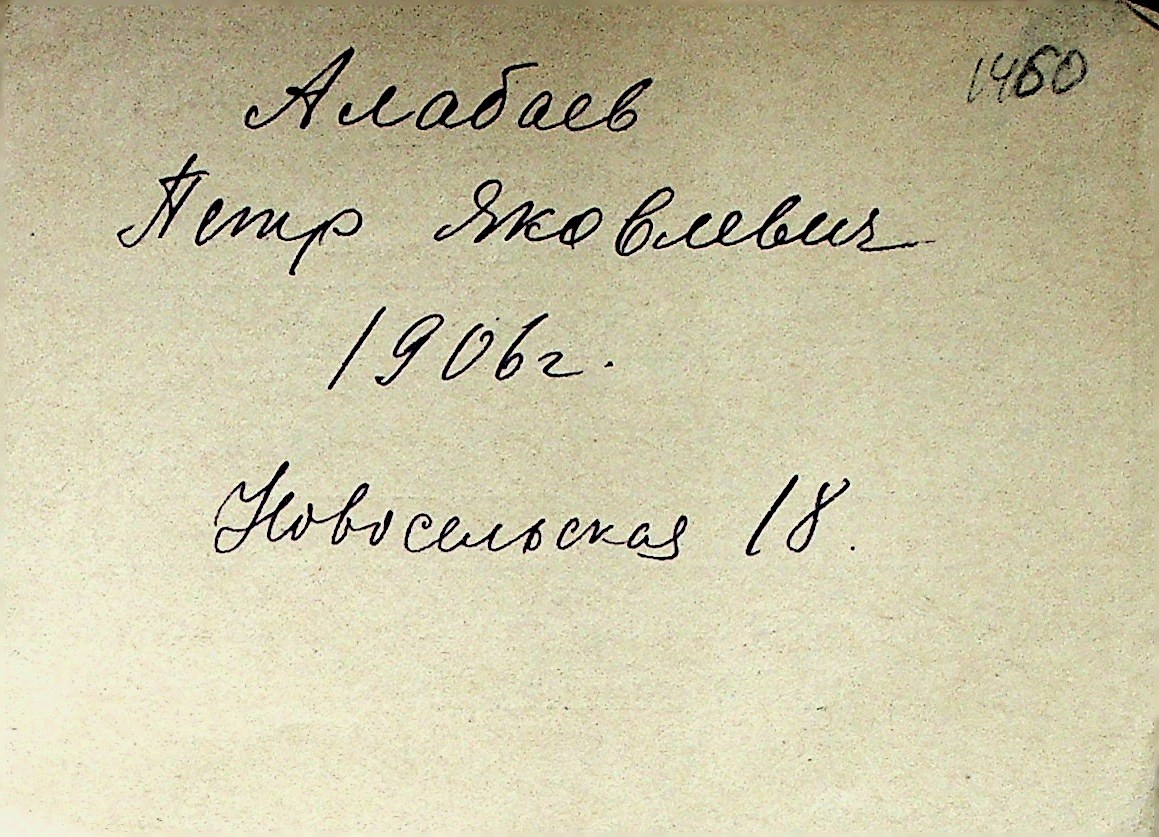 1460
Алабаев
Петр Яковлевич
1906г.
Новосельская 18.